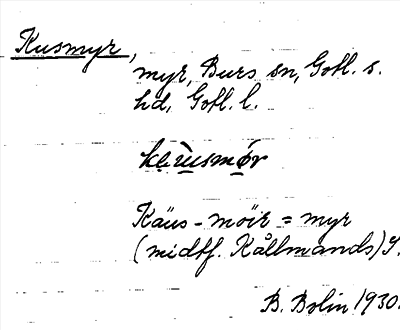 Kusmyr,
myr, Burs sn, Gotl. s.
hd, Gotl. l.
Käus-möir = myr
(midtf. Kållmands) G.
B. Bolin 1930.